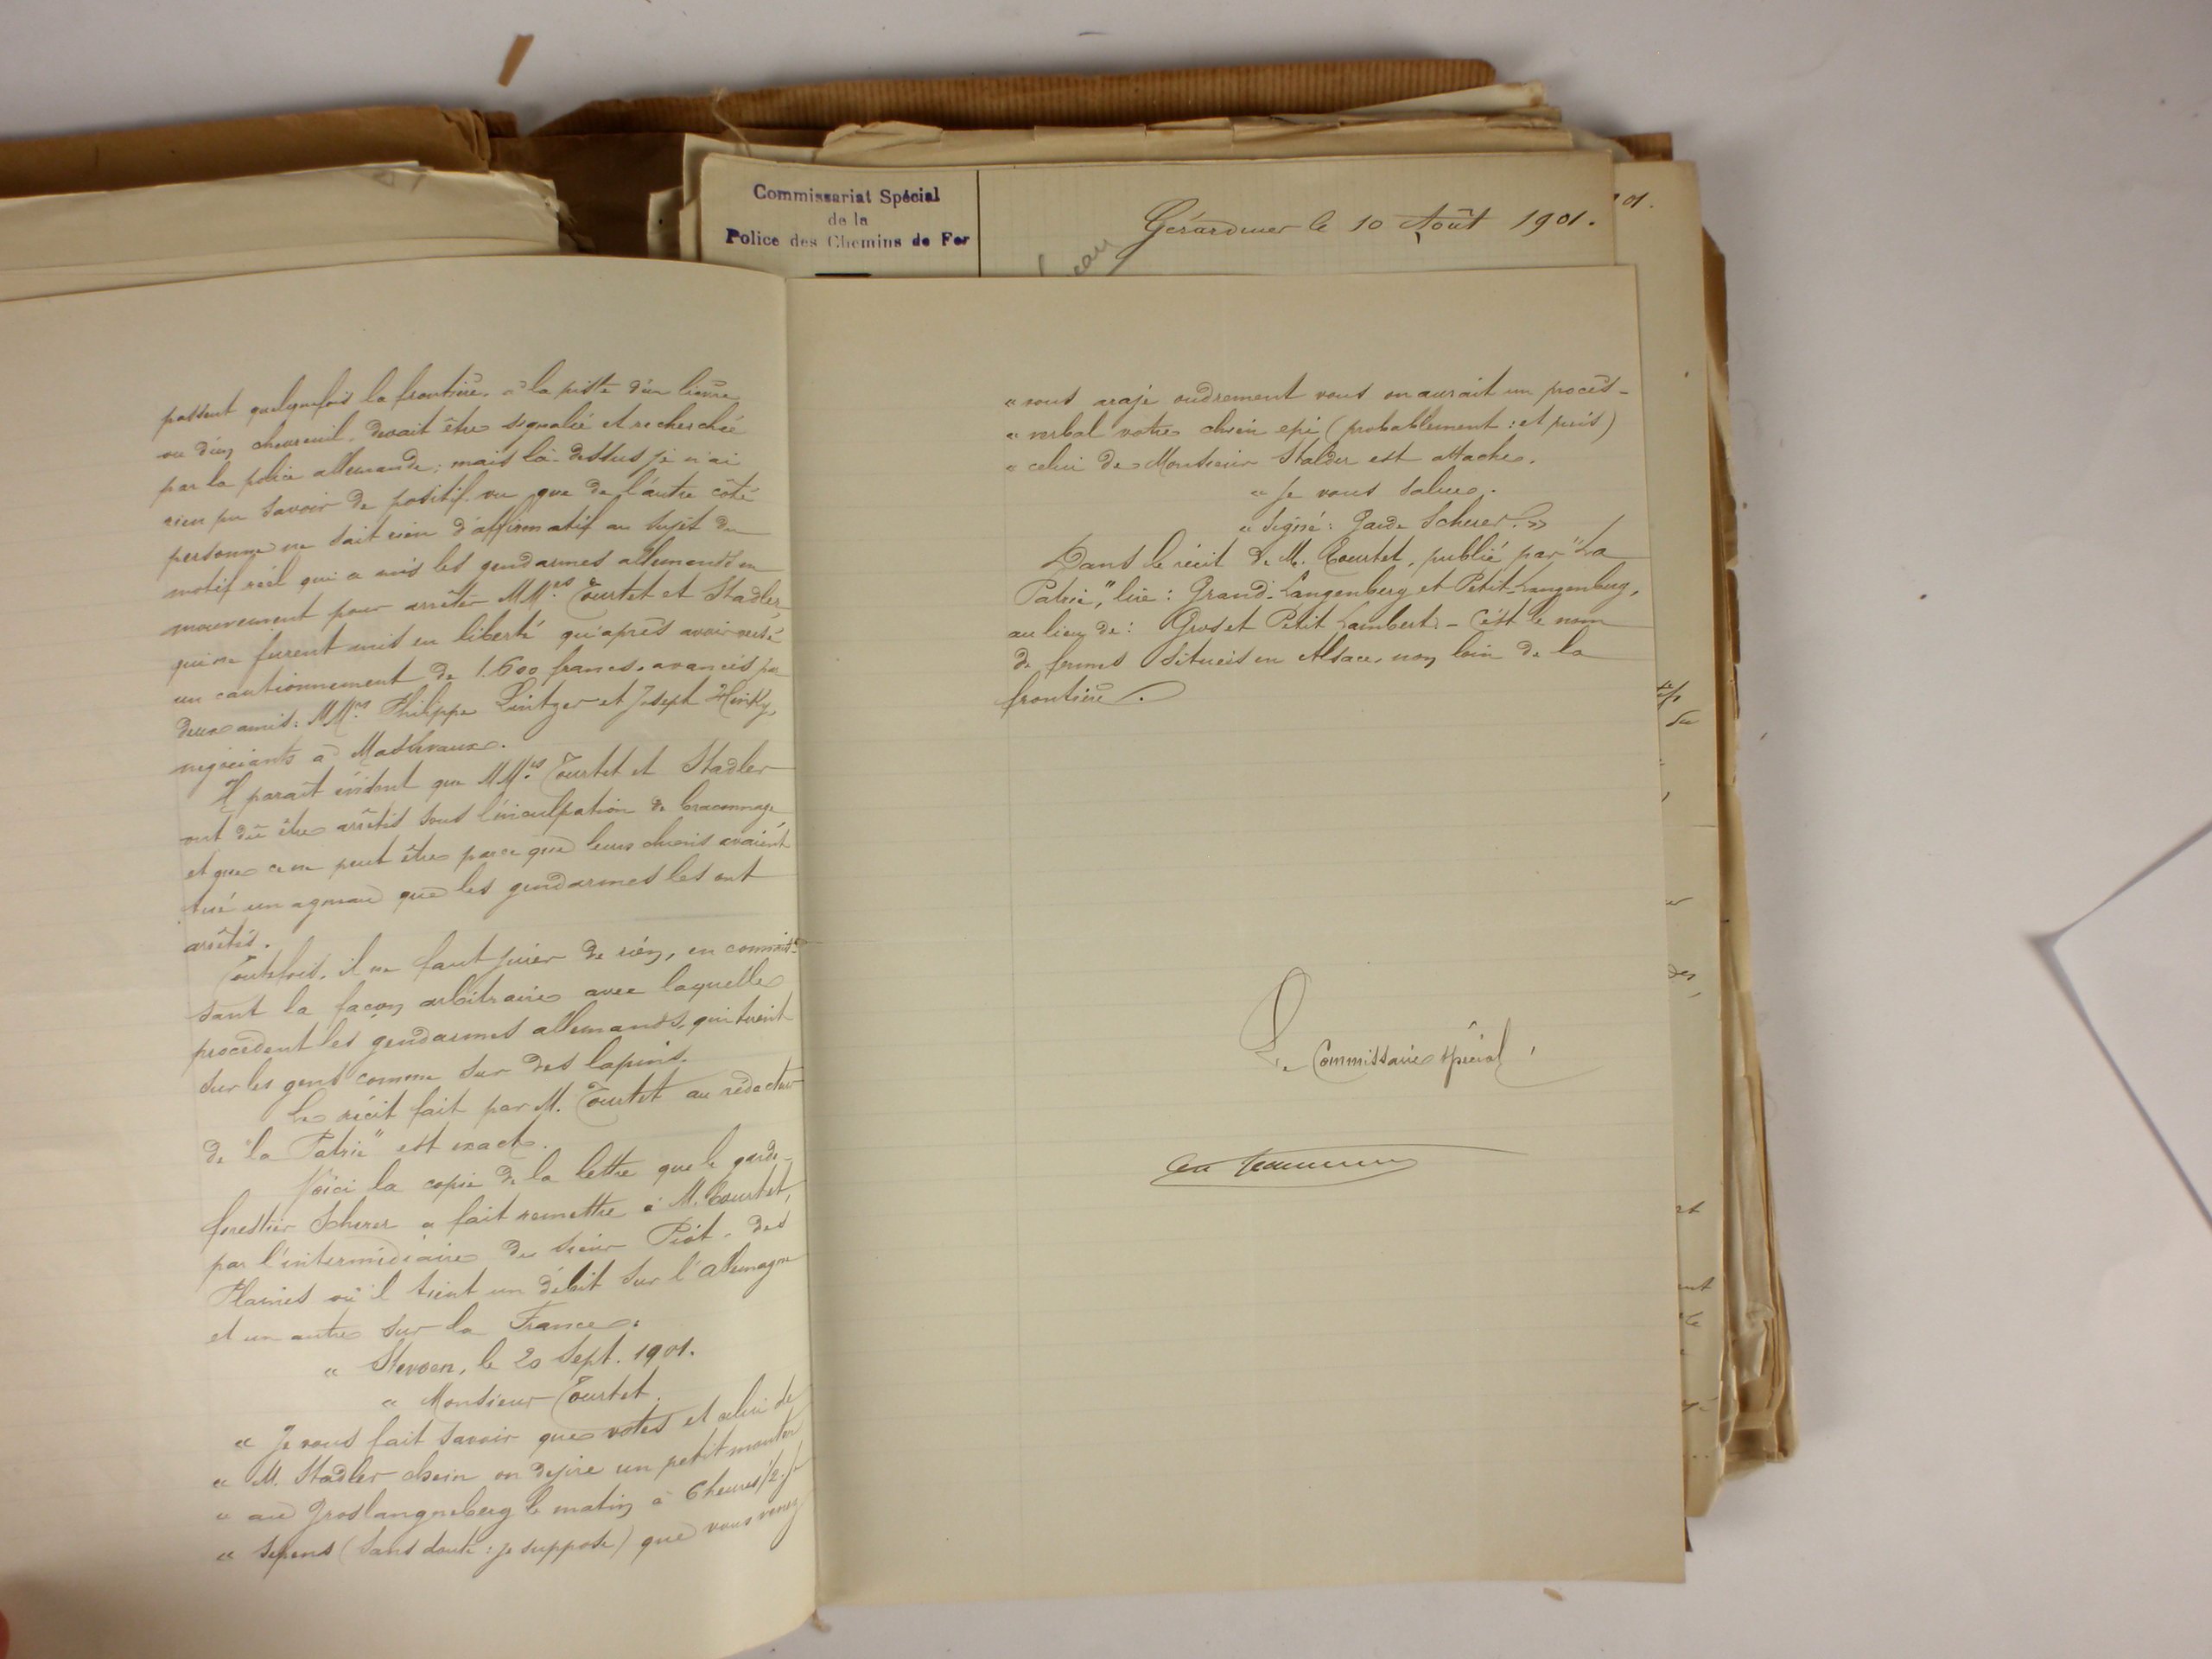 Commissariat Spécial
de la
Police des Chemins de Fer
Gérardmer le 10 Août 1901.
01.
passent quelquefois la frontière, à la piste d'un lièvre
ou d'un chevreuil, devait être signalé et recherché
par la police allemande; mais là-dessus je n'ai
rien pu savoir de positif vu que de l'autre côté
personne ne sait rien d'affirmatif au sujet du
motif réel qui a mis les gendarmes allemands en
mouvement pour arrêter MM.rs Tourtet et Stadler,
qui ne furent mis en liberté qu'après avoir versé
un cautionnement de 1.600 francs, avancés par
deux amis: MM.rs Philippe Lintzer et Joseph Hinky,
négociants à Massevaux.
Il parait évident que MM.rs Tourtet et Stadler
ont dû être arrêtés sous l'inculpation de braconnage
et que ce ne peut être parce que leurs chiens avaient
tué un agneau que les gendarmes les ont
arrêtés.
Toutefois, il ne faut jurer de rien, en connais-
sant la façon arbitraire avec laquelle
procèdent les gendarmes allemands, qui tirent
sur les gens comme sur des lapins.
Le récit fait par M. Tourtet au rédacteur
de "la Patrie" est exact.
Voici la copie de la lettre que le garde-
forestier Scherer a fait remettre à M. Tourtet,
par l'intermédiaire du sieur Piot, des
Plaines où il tient un débit sur l'Allemagne
et un autre sur la France:
" Stervoen, le 20 Sept. 1901.
" Monsieur Tourtet.
" Je vous fait savoir que votes et celui de
" M. Stadler chein on dejire un petit mouton
" au Groslangneberg le matin à 6 heures 1/2. Je
" sepens (sans doute: je suppose) que vous venez
" vous araje oudrement vous on aurait un procès-
" verbal votre chein epi (probablement: et puis)
" celui de Monsieur Stalder est attache.
" Je vous salue.
" Signé: Garde Scherer. »
Dans le récit de M. Tourtet, publié par "La
Patrie", lire: Grand-Langenberg et Petit-Langenberg,
au lieu de: Gros et Petit Lambert. - C'est le nom
de fermes situées en Alsace, non loin de la
frontière.
Le Commissaire spécial,